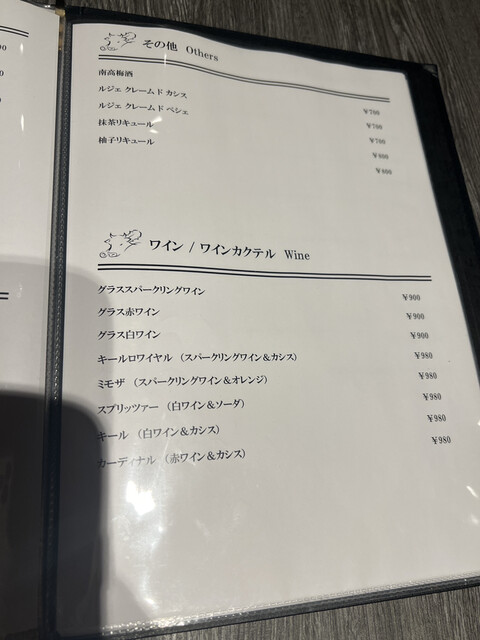 その他 Others
南高梅酒 ¥700
ルジェ クレーム ド カシス ¥700
ルジェ クレーム ド ペシェ ¥700
抹茶リキュール ¥800
柚子リキュール ¥800
ワイン / ワインカクテル Wine
グラススパークリングワイン ¥900
グラス赤ワイン ¥900
グラス白ワイン ¥900
キールロワイヤル (スパークリングワイン&カシス) ¥980
ミモザ (スパークリングワイン&オレンジ) ¥980
スプリッツァー (白ワイン&ソーダ) ¥980
キール (白ワイン&カシス) ¥980
カーディナル (赤ワイン&カシス)